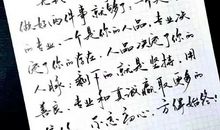 做好两件事就够了,一个是你
的专业,一个是你的人品,专业决
定了你的存在,人品决定了你的
人脉,剩下的就是坚持,用
善良、专业和真诚赢取更多的
信任!不忘初心,方得始终!